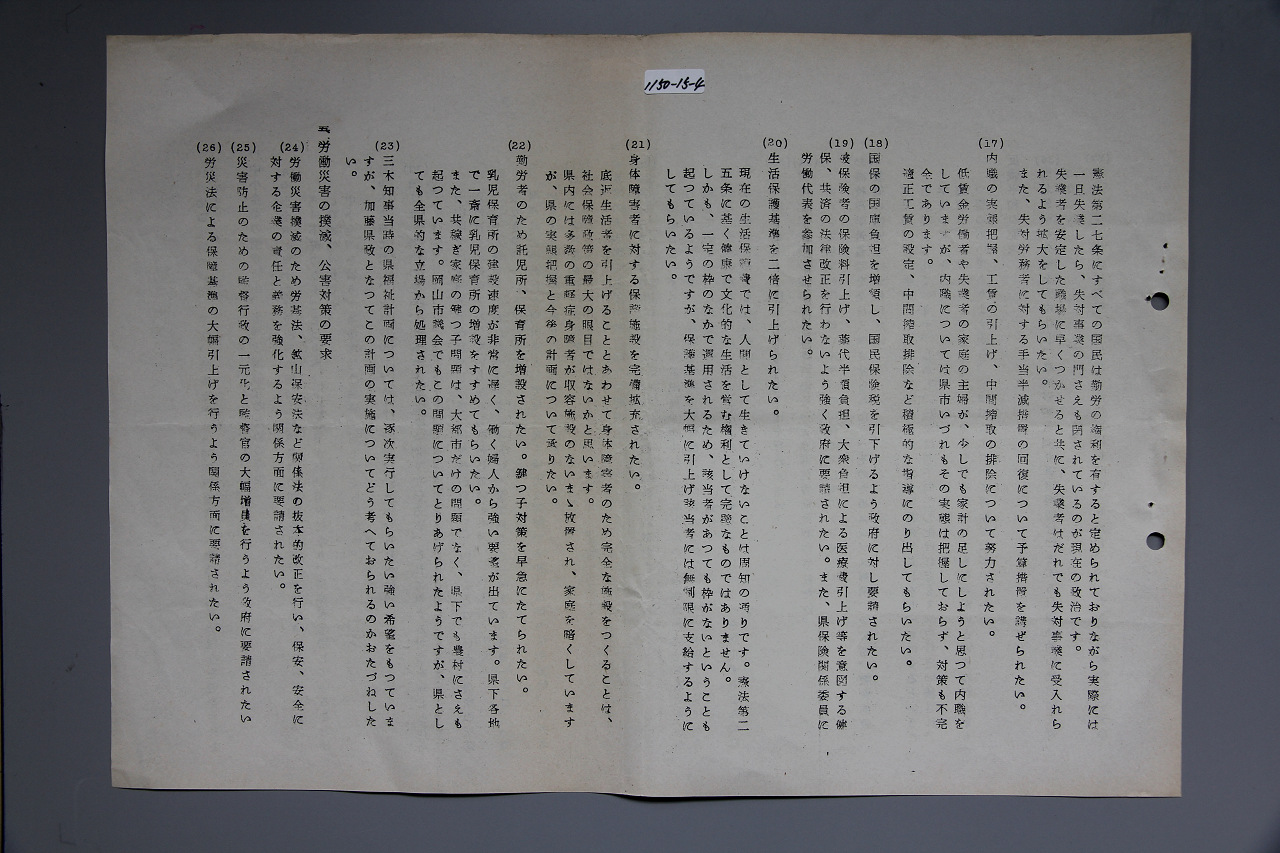 1150-15-4
憲法第二七条にすべての国民は勤労の権利を有すると定められておりながら実際には
一旦失業したら、失対事業の門さえも閉されているのが現在の政治です。
失業者を安定した職場に早くつかせると共に、失業者はだれでも失対事業に受入れら
れるよう拡大をしてもらいたい。
また、失対労務者に対する手当半減措置の回復について予算措置を講ぜられたい。
(17) 内職の実態把握、工賃の引上げ、中間搾取の排除について努力されたい。
低賃金労働者や失業者の家庭の主婦が、少しでも家計の足しにしようと思つて内職を
していますが、内職については県市いづれもその実態は把握しておらず、対策も不完
全であります。
適正工賃の設定、中間搾取排除など積極的な指導にのり出してもらいたい。
(18) 国保の国庫負担を増額し、国民保険税を引下げるよう政府に対し要請されたい。
(19) 被保険者の保険料引上げ、薬代半額負担、大衆負担による医療費引上げ等を意図する健
保、共済の法律改正を行わないよう強く政府に要請されたい。また、県保険関係委員に
労働代表を参加させられたい。
(20) 生活保護基準を二倍に引上げられたい。
現在の生活保護費では、人間として生きていけないことは周知の通りです。憲法第二
五条に基く健康で文化的な生活を営む権利として完璧なものではありません。
しかも、一定の枠のなかで運用されるため、該当者があつても枠がないということも
起つているようですが、保護基準を大幅に引上げ該当者には無制限に支給するように
してもらいたい。
(21) 身体障害者に対する保護施設を完備拡充されたい。
底辺生活者を引上げることとあわせて身体障害者のため完全な施設をつくることは、
社会保障政策の最大の眼目ではないかと思います。
県内には多数の重軽症身障者が収容施設のないまゝ放置され、家庭を暗くしています
が、県の実態把握と今後の計画について承りたい。
(22) 勤労者のため託児所、保育所を増設されたい。鍵つ子対策を早急にたてられたい。
乳児保育所の建設速度が非常に遅く、働く婦人から強い要望が出ています。県下各地
で一斎に乳児保育所の増設をすすめてもらいたい。
また、共稼ぎ家庭の鍵つ子問題は、大都市だけの問題でなく、県下でも農村にさえも
起つています。岡山市議会でもこの問題についてとりあげられたようですが、県とし
ても全県的な立場から処理されたい。
(23) 三木知事当時の県福祉計画については、逐次実行してもらいたい強い希望をもつていま
すが、加藤県政となつてこの計画の実施についてどう考へておられるのかおたづねした
い。
五、労働災害の撲滅、公害対策の要求
(24) 労働災害撲滅のため労基法、鉱山保安法など関係法の抜本的改正を行い、保安、安全に
対する企業の責任と義務を強化するよう関係方面に要請されたい。
(25) 災害防止のための監督行政の一元化と監督官の大幅増員を行うよう政府に要請されたい
(26) 労災法による保障基準の大幅引上げを行うよう関係方面に要請されたい。